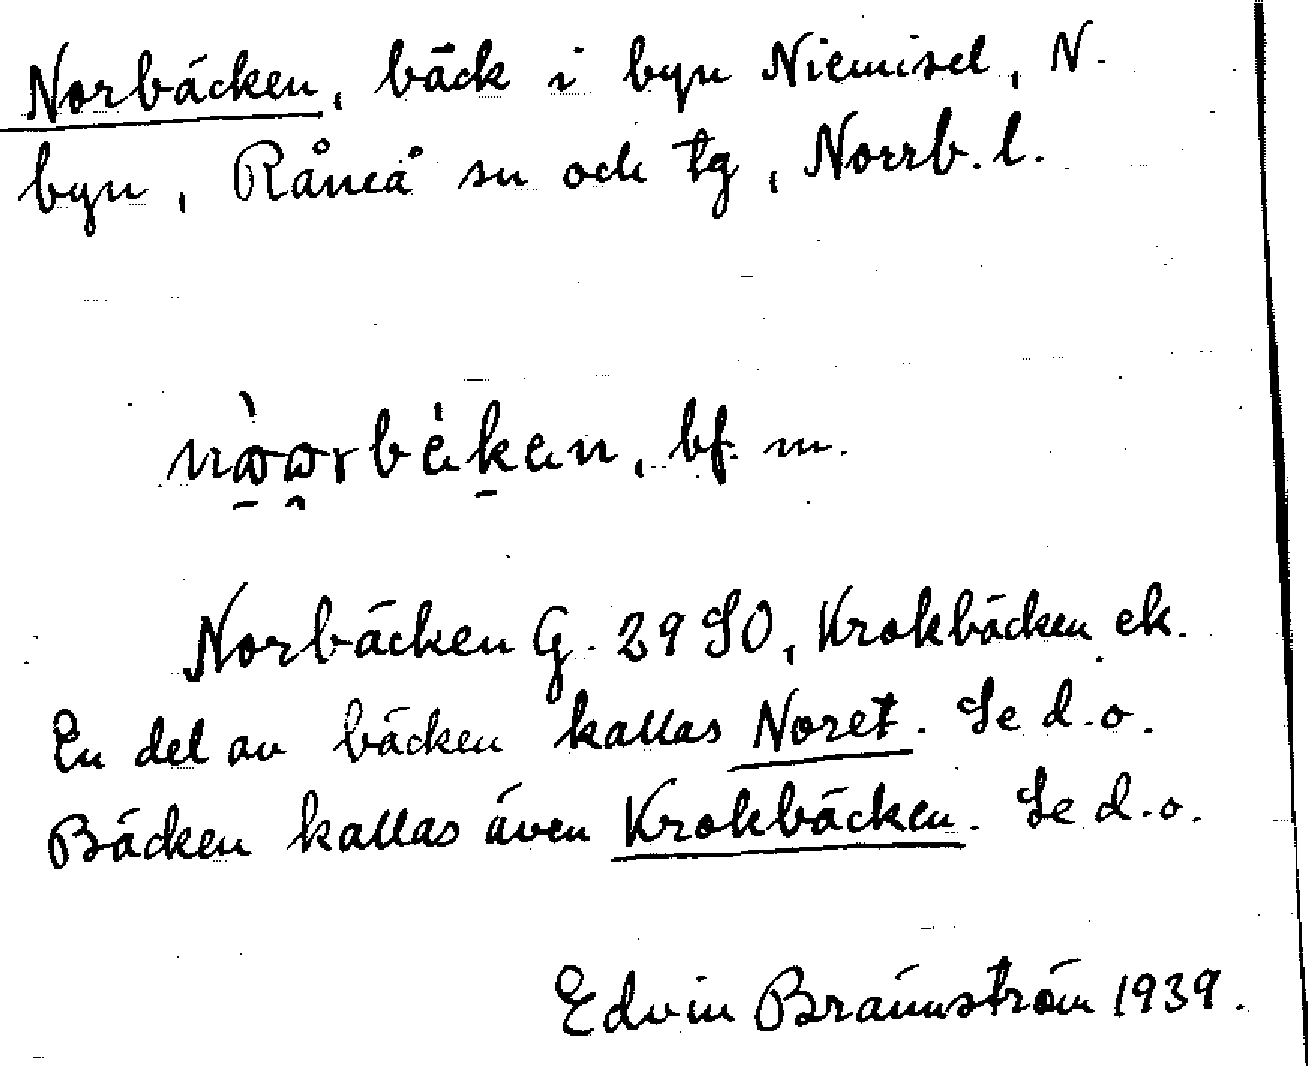 Norbäcken, bäck i byn Niemisel, N.
byn, Råneå sn och tg, Norrb. l.
bf. m.
Norbäcken G. 29 SO, Krokbäcken ek.
En del av bäcken kallas Noret. Se d.o.
Bäcken kallas även Krokbäcken. Se d.o.
Edvin Brännström 1939.